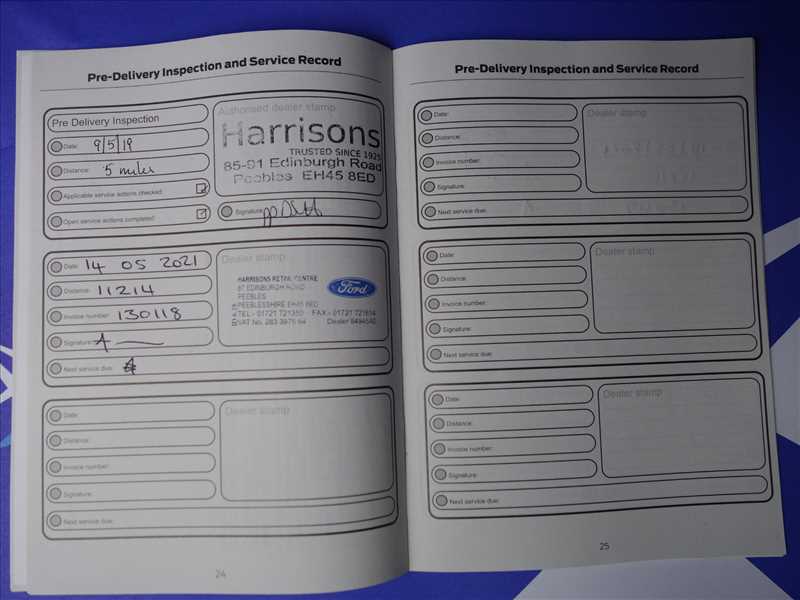 Pre-Delivery Inspection and Service Record
Pre Delivery Inspection
Date: 9/5/19
Distance: 5 miles
Applicable service actions checked:
Open service actions completed:
Authorised dealer stamp
Harrisons
TRUSTED SINCE 1925
85-91 Edinburgh Road
Peebles EH45 8ED
Signature:
Date: 14 05 2021
Distance: 11214
Invoice number: 130118
Signature:
Next service due:
Dealer stamp
HARRISONS RETAIL CENTRE
EDINBURGH ROAD
PEEBLES
PEEBLESSHIRE EH45 8ED
TEL - 01721 721350 FAX - 01721
VAT No. 283 3975 64 Dealer
Ford
Date:
Distance:
Invoice number:
Signature:
Next service due:
Dealer stamp
24
Pre-Delivery Inspection and Service Record
Date:
Distance:
Invoice number:
Signature:
Next service due:
Dealer stamp
Date:
Distance:
Invoice number:
Signature:
Next service due:
Dealer stamp
Date:
Distance:
Invoice number:
Signature:
Next service due:
Dealer stamp
25